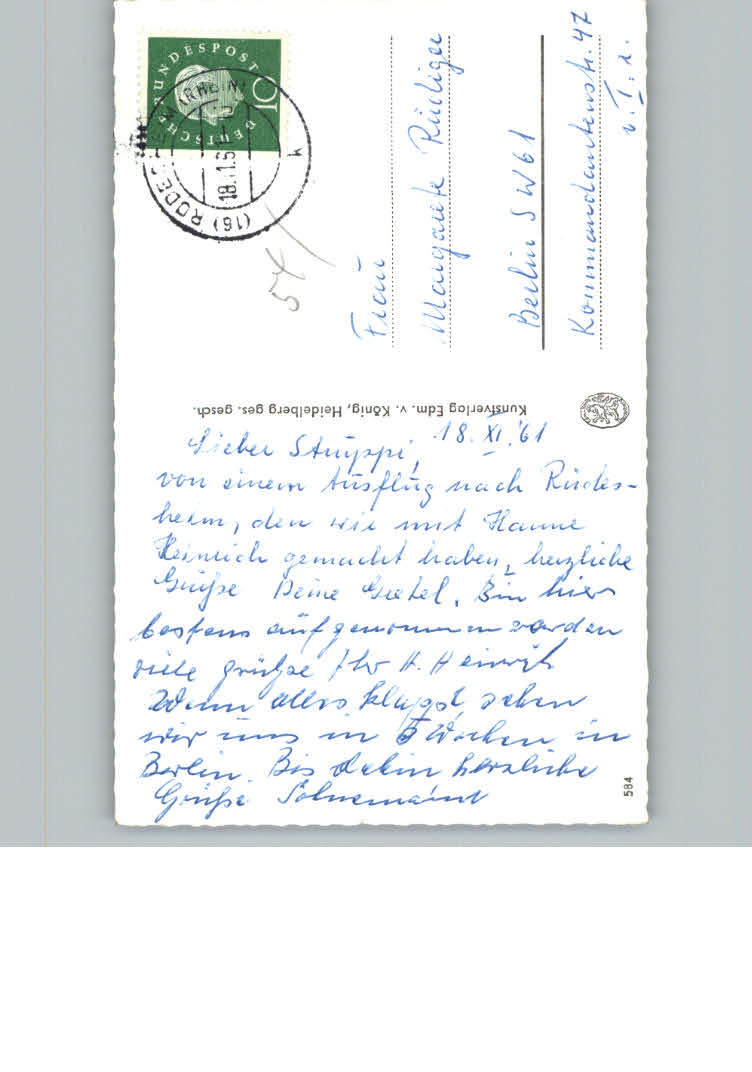 DEUTSCHE BUNDESPOST
10
(16) RÜDESHEIM (RHEIN)
18.11.61
k
Frau
Margarete Rüdiger
Berlin SW 61
Kommandantenstr. 47
v. I. r.
Kunstverlag Edm. v. König, Heidelberg ges. gesch.
18. XI. '61
Lieber Struppi,
von einem Ausflug nach Rüdes-
heim, den wir mit Hanne
Heinrich gemacht haben, herzliche
Grüße Deine Gretel. Bin hier
bestens aufgenommen worden
viele grüße Ihr H. Heinrich
Wenn alles klappt, sehen
wir uns in 5 Wochen in
Berlin. Bis dahin herzliche
Grüße
584